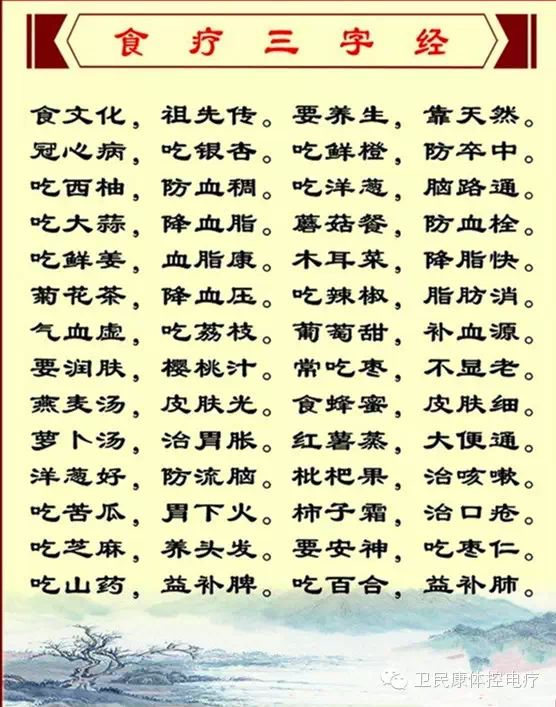 食疗三字经
食文化，祖先传。要养生，靠天然。
冠心病，吃银杏。吃鲜橙，防卒中。
吃西柚，防血稠。吃洋葱，脑路通。
吃大蒜，降血脂。蘑菇餐，防血栓。
吃鲜姜，血脂康。木耳菜，降脂快。
菊花茶，降血压。吃辣椒，脂肪消。
气血虚，吃荔枝。葡萄甜，补血源。
要润肤，樱桃汁。常吃枣，不显老。
燕麦汤，皮肤光。食蜂蜜，皮肤细。
萝卜汤，治胃胀。红薯蒸，大便通。
洋葱好，防流脑。枇杷果，治咳嗽。
吃苦瓜，胃下火。柿子霜，治口疮。
吃芝麻，养头发。要安神，吃枣仁。
吃山药，益补脾。吃百合，益补肺。
卫民康体控电疗